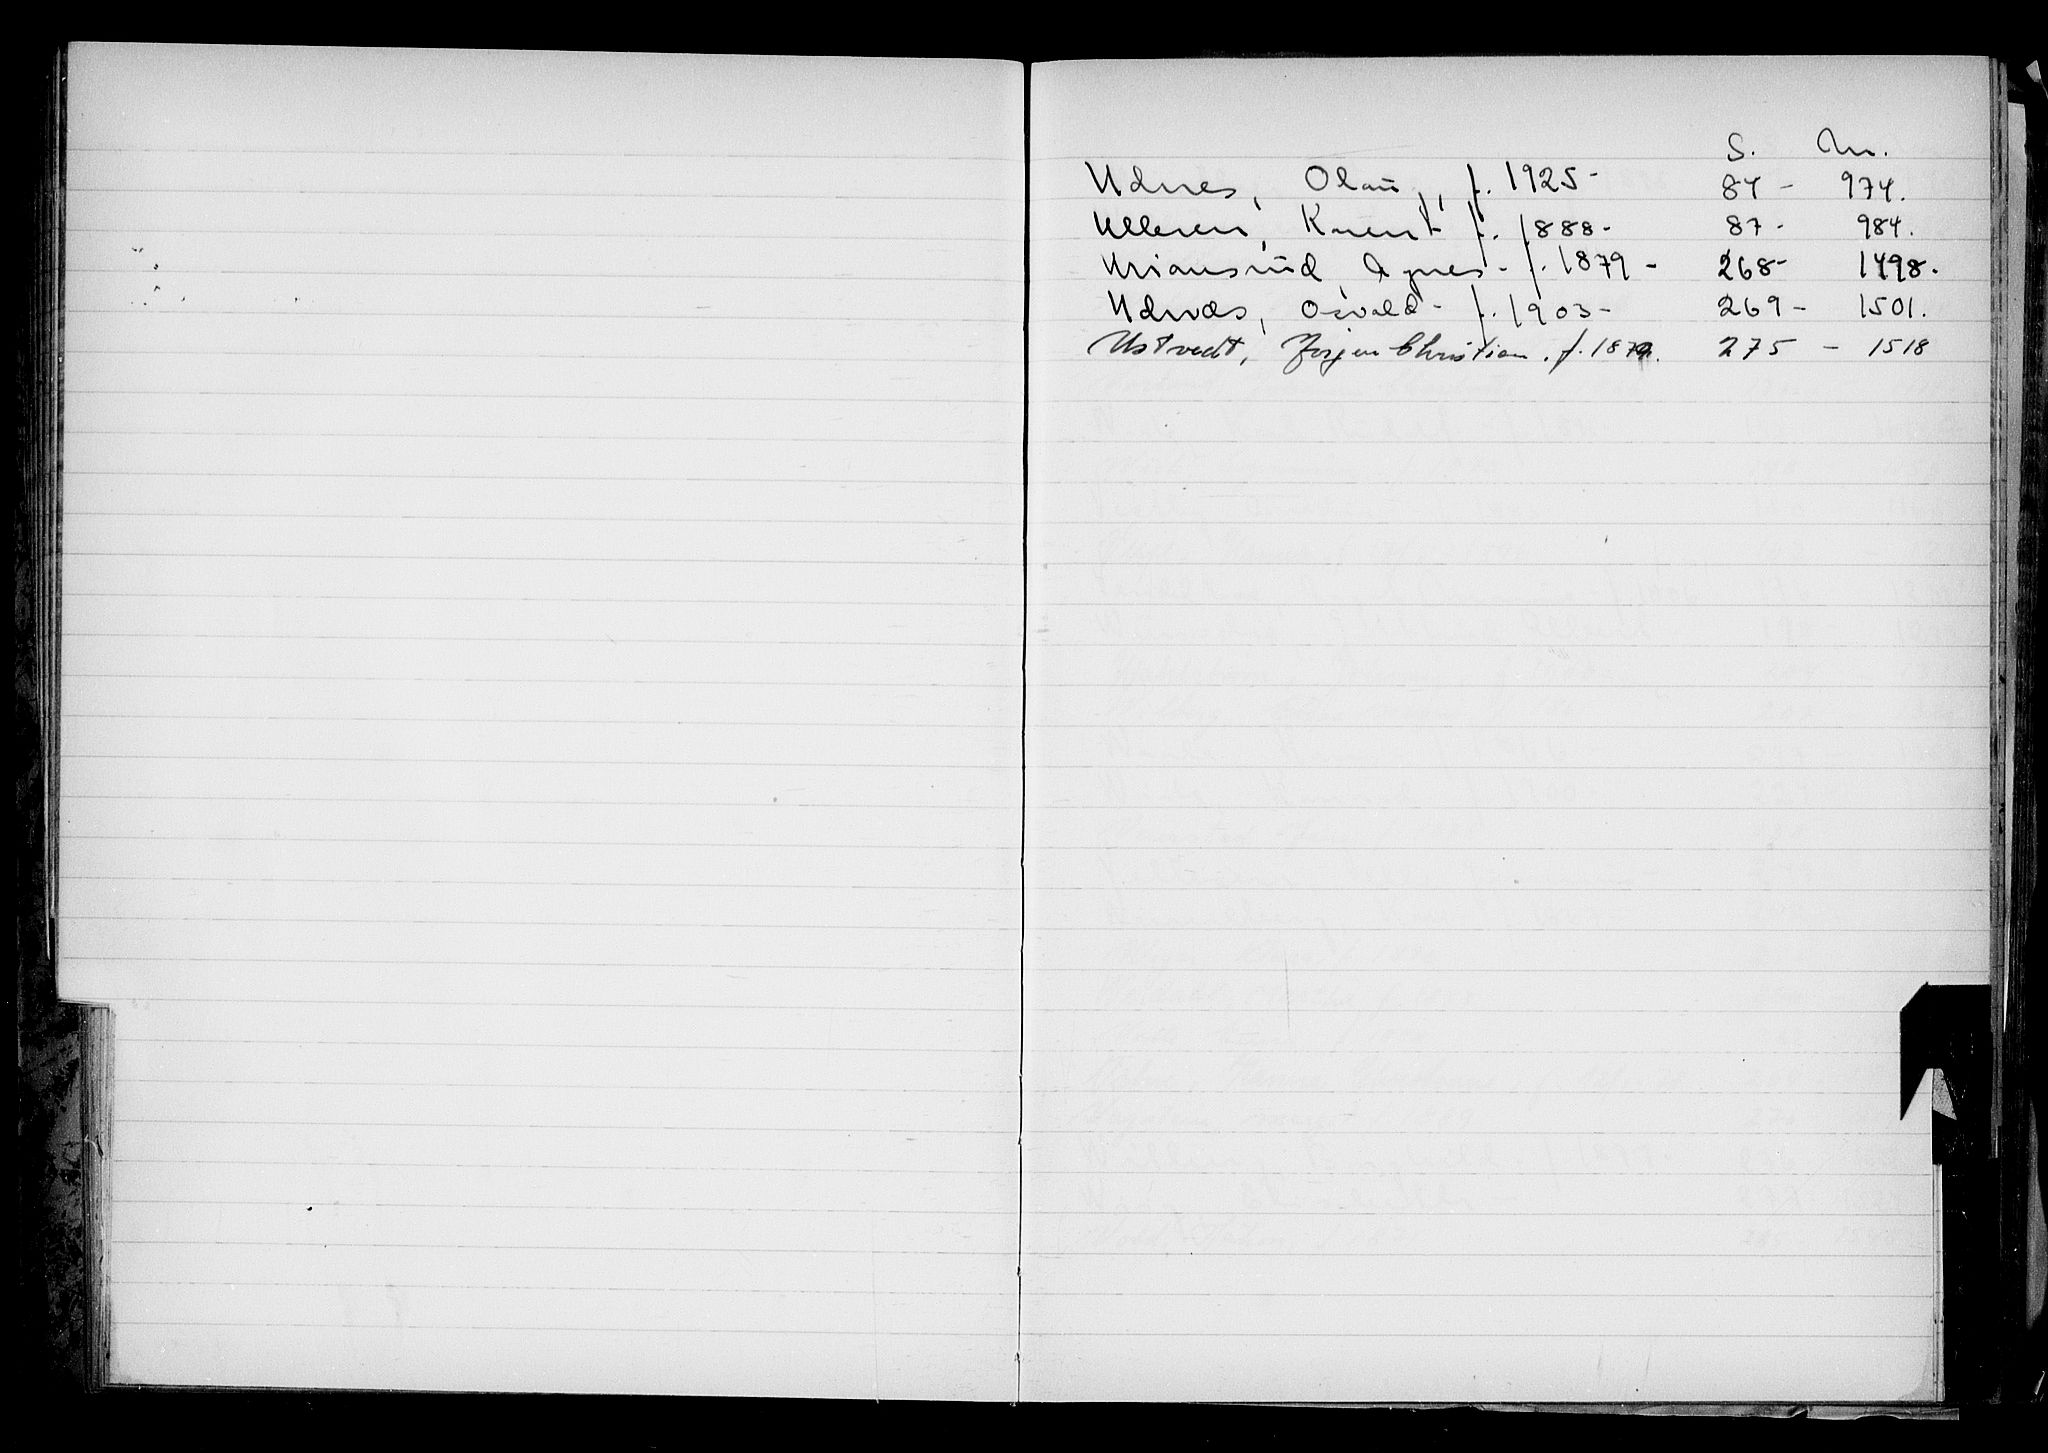 S. Nr.
Udnes, Olav, f. 1925 - 84 - 974.
Ulleren, Knut f. 1888 - 87 - 984.
Uriansrud, Agnes - f. 1879 - 268 - 1498.
Udnæs, Osvald - f. 1903 - 269 - 1501.
Ustvedt, Jørgen Christian. f. 1879. 275 - 1518